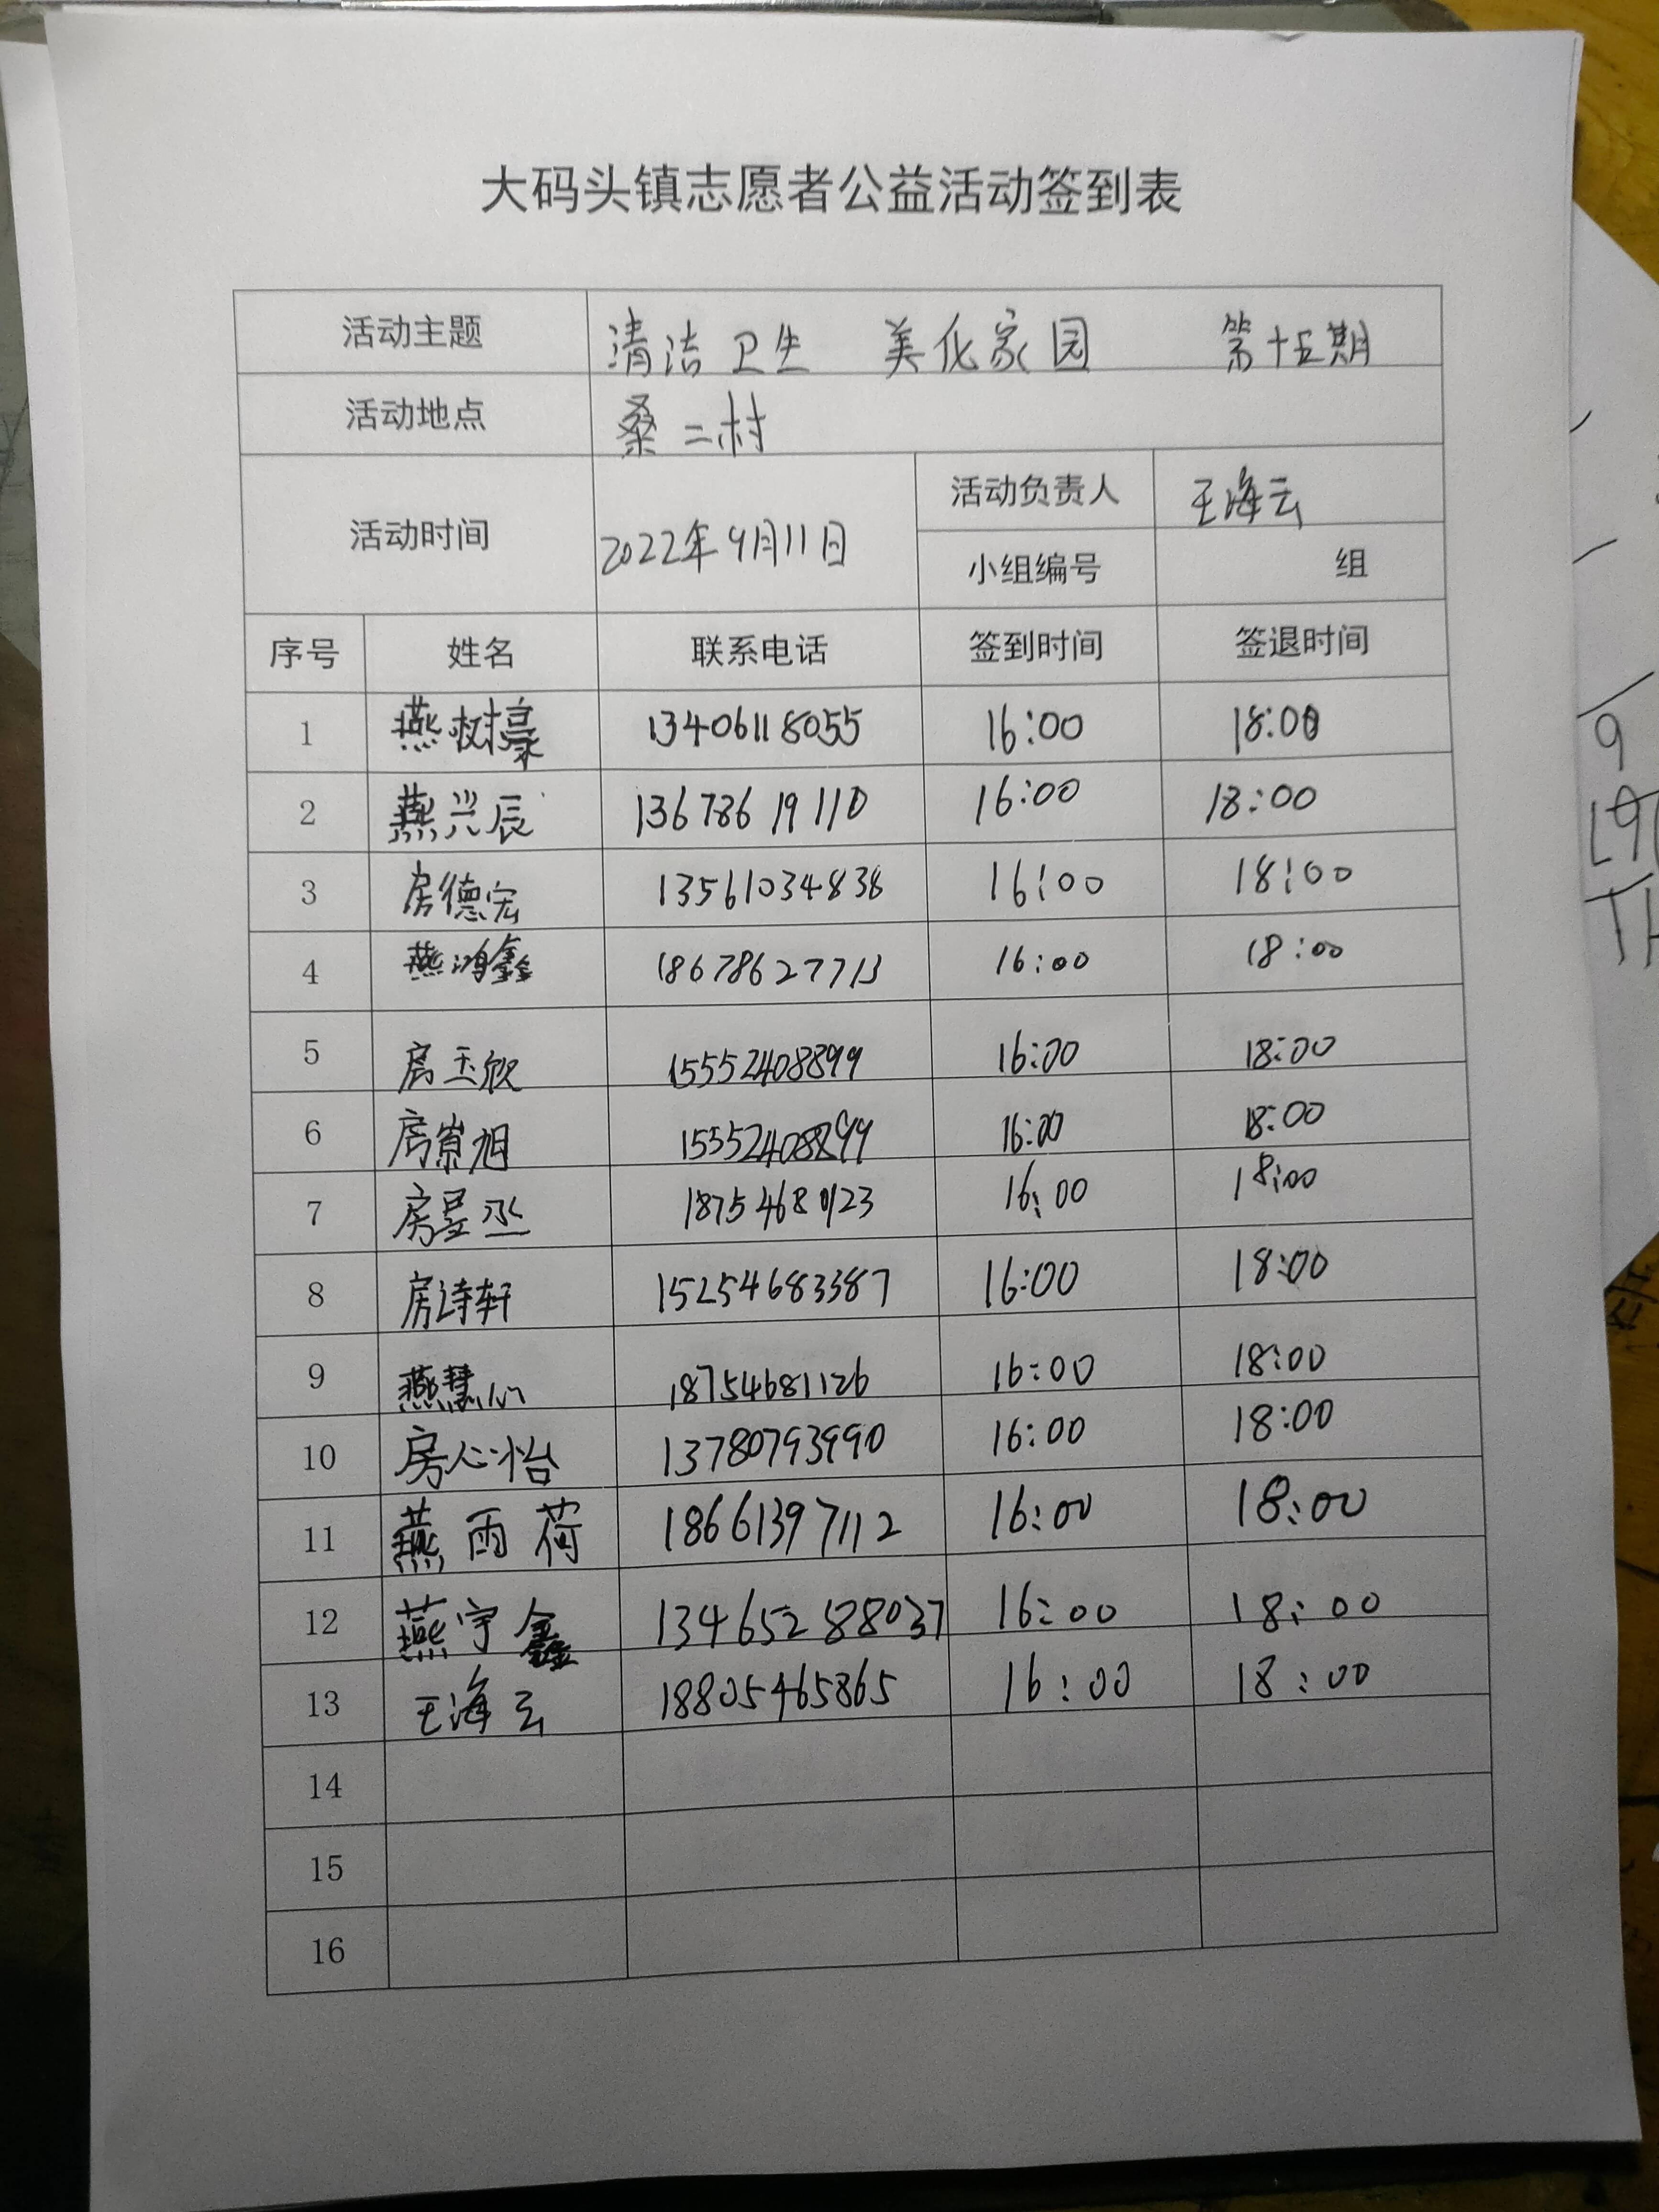 大码头镇志愿者公益活动签到表
活动主题 清洁卫生 美化家园 第十五期
活动地点 桑二村
活动时间 2022年9月11日 活动负责人 王海云
小组编号 组
序号 姓名 联系电话 签到时间 签退时间
1 燕树 13406118055 16:00 18:00
2 燕兴辰 13678619110 16:00 18:00
3 房德宏 13561034838 16:00 18:00
4 燕鸿鑫 18678627713 16:00 18:00
5 房玉欣 15552408899 16:00 18:00
6 房崇旭 15552408899 16:00 18:00
7 房昱丞 18754680123 16:00 18:00
8 房诗轩 15254683387 16:00 18:00
9 燕慧心 18754681126 16:00 18:00
10 房心怡 13780793990 16:00 18:00
11 燕雨荷 18661397112 16:00 18:00
12 燕宇鑫 134652888037 16:00 18:00
13 王海云 18805465865 16:00 18:00
14
15
16